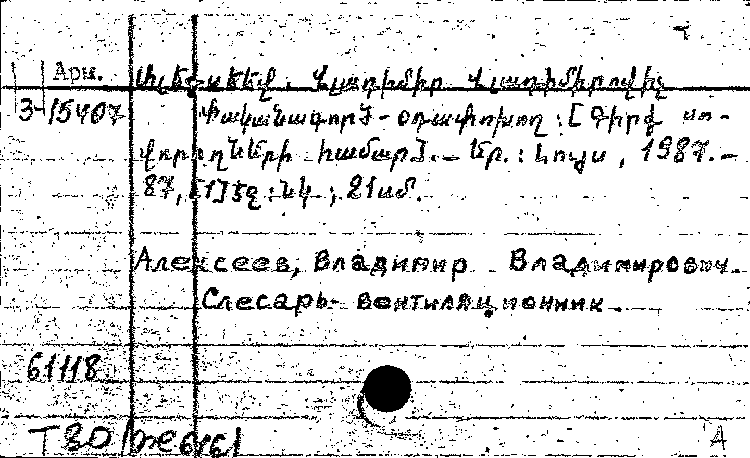 Арм.
Ալեքսեև, Վլադիմիր Վլադիմիրովիչ
3-15407 Փականագործ-օդափոխող: [Գիրք սո-
վորողների համար]. — Եր.: Լույս, 1987.—
87, [1] էջ: նկ.; 21սմ.
Алексеев, Владимир Владимирович.
Слесарь-вентиляционник.
61118
А